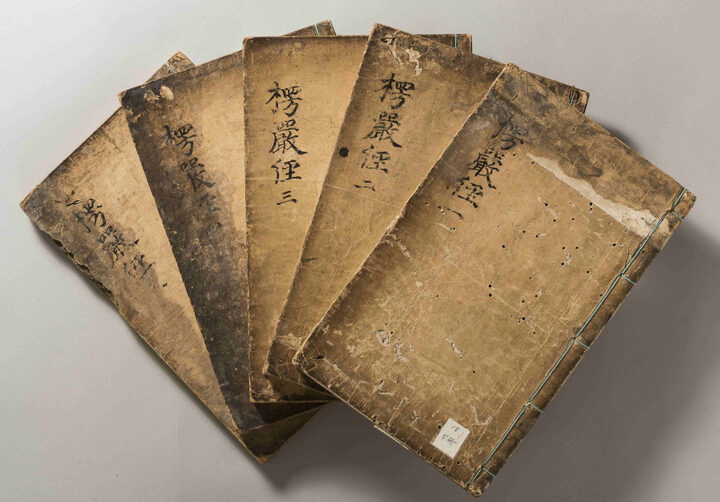 楞嚴經一
楞嚴經二
楞嚴經三
楞嚴經
楞嚴經